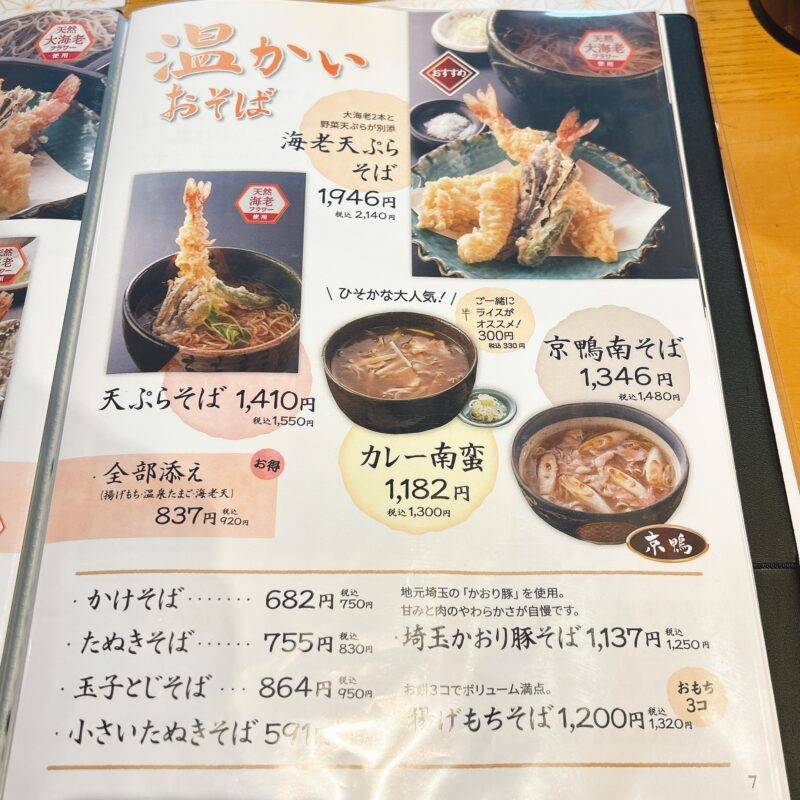 温かい
おそば
天然
大海老
フラワー
使用
おすすめ
天然
大海老
フラワー
使用
大海老2本と
野菜天ぷらが別添
海老天ぷら
そば
1,946円
税込 2,140円
天然
海老
フラワー
使用
天ぷらそば 1,410円
税込1,550円
\ ひそかな大人気! /
ご一緒に
ライスが
オススメ!
300円
税込 330円
カレー南蛮
1,182円
税込1,300円
京鴨南そば
1,346円
税込1,480円
京鴨
お得
・全部添え
(揚げもち・温泉たまご・海老天)
837円 税込920円
・かけそば ······· 682円 税込750円
・たぬきそば ······ 755円 税込830円
・玉子とじそば ··· 864円 税込950円
・小さいたぬきそば 591
地元埼玉の「かおり豚」を使用。
甘みと肉のやわらかさが自慢です。
・埼玉かおり豚そば 1,137円 税込1,250円
お餅3コでボリューム満点。
揚げもちそば 1,200円 税込1,320円
おもち
3コ
7